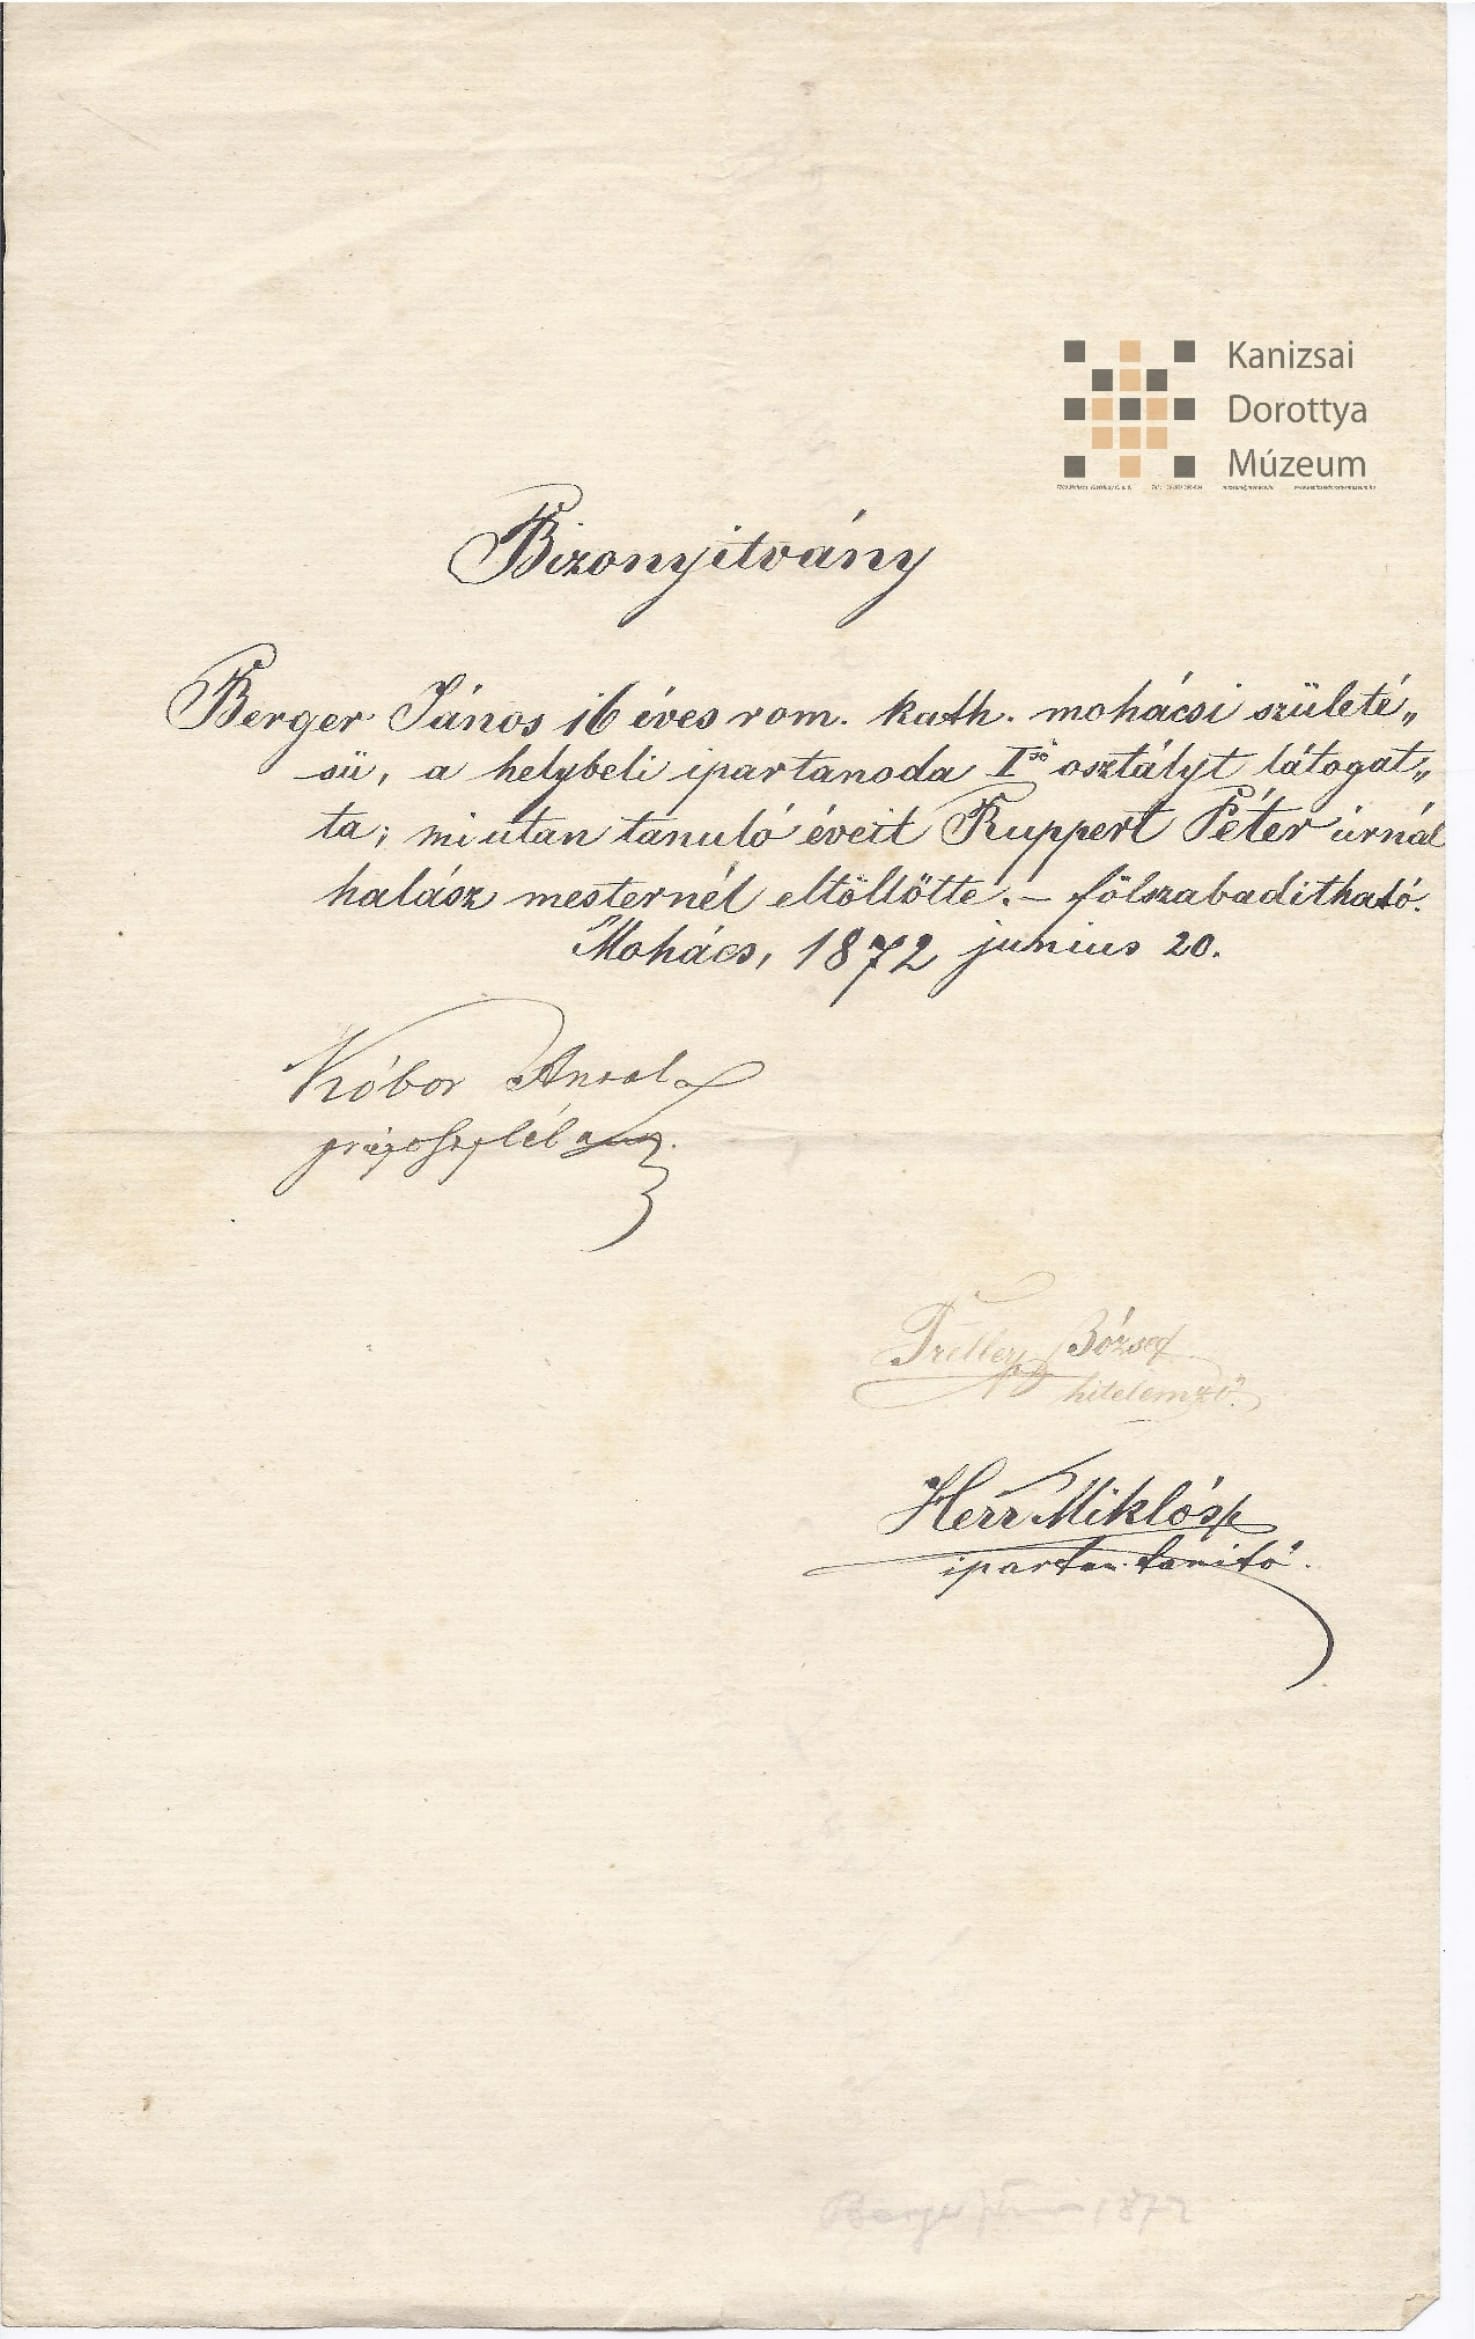 Kanizsai
Dorottya
Múzeum
Bizonyitvány
Berger János 16 éves rom. kath. mohácsi születé„
sü, a helybeli ipartanoda Iső osztályt látogat„
ta; miután tanuló éveit Ruppert Péter úrnál
halász mesternél eltöltötte. — fölszabaditható.
Mohács, 1872 junius 20.
Kóbor Antal
József
hitelemző.
Herr Miklós
ipartan. tanitó.
Berger 1872